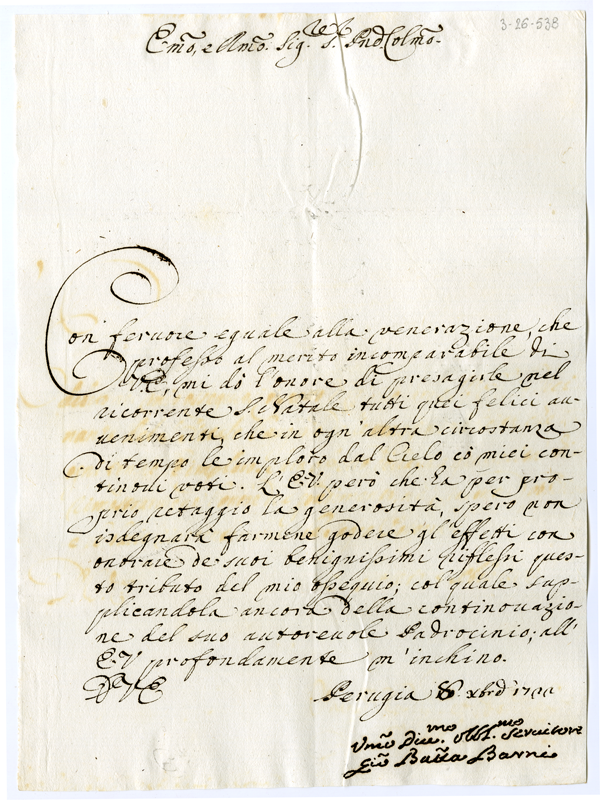 3-26-538
E.mo, e R.mo Sig.r S. Pnđ. Colmo.
Con feruore eguale alla venerazione, che
professo al merito incomparabile di
V.E, mi dò l'onore di presagirle nel
ricorrente S. Natale tutti quei felici au-
uenimenti, che in ogn'altra circostanza
di tempo le imploro dal Cielo cõ miei con-
tinoui voti. L'E.V. però che ha p̃er pro-
prio retaggio la generosità, spero non
isdegnarà farmene godere gl'effetti con
onorare de suoi benignissimi riflessi ques-
to tributo del mio ossequio; col quale sup-
plicandola ancora della continouazio-
ne del suo autoreuole Padrocinio; all'
E.V. profondamente m'inchino.
D.V.E
Perugia 8. xbrẽ
Vmõ Diu.mo Obbl.mo Seruitore
Giõ Batt̃a Barni